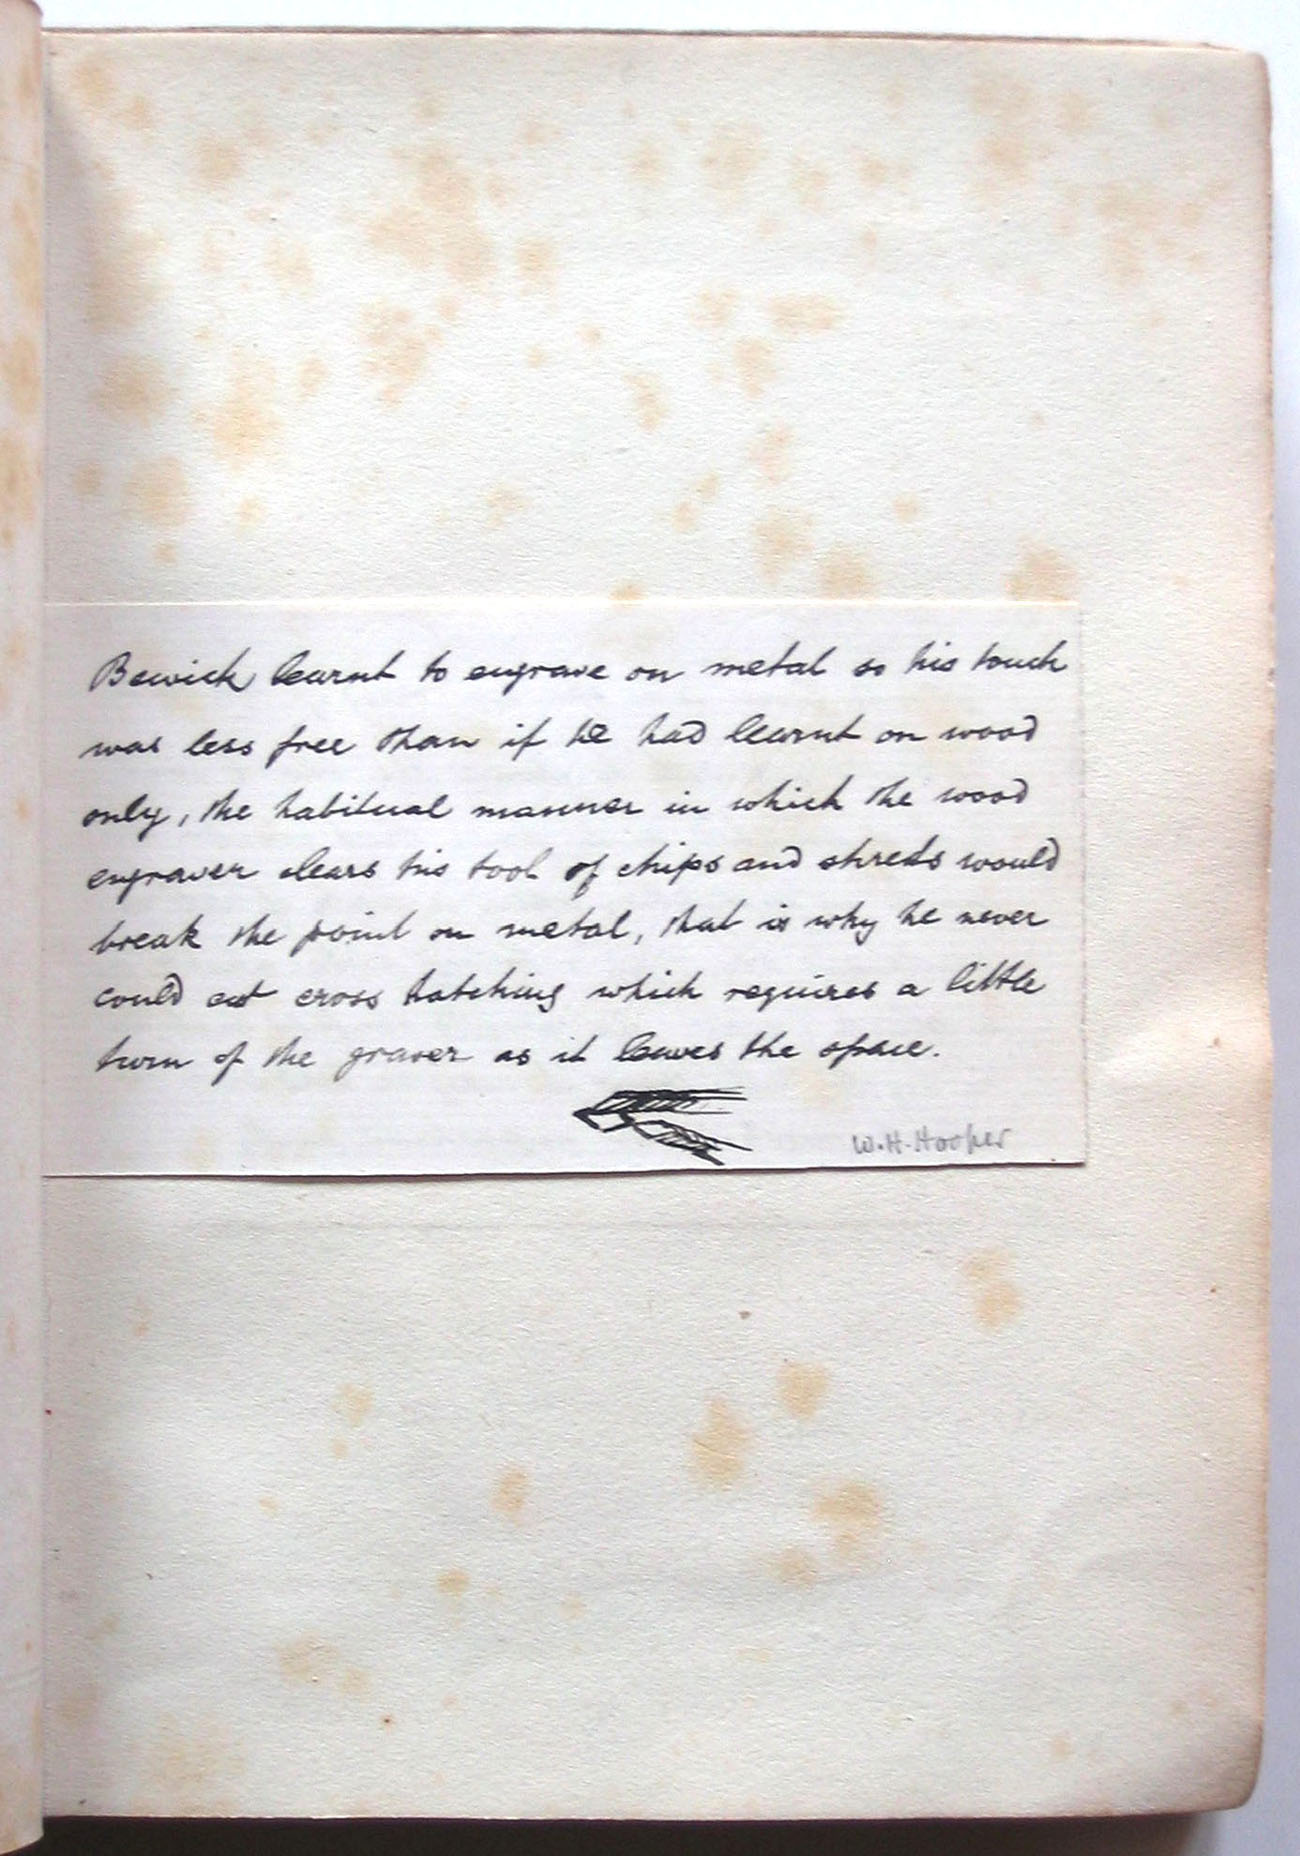 Bewick learnt to engrave on metal so his touch
was less free than if he had learnt on wood
only, the habitual manner in which the wood
engraver clears his tool of chips and shreds would
break the point on metal, that is why he never
could cut cross hatching which requires a little
turn of the graver as it leaves the space.
W.H.Hooper